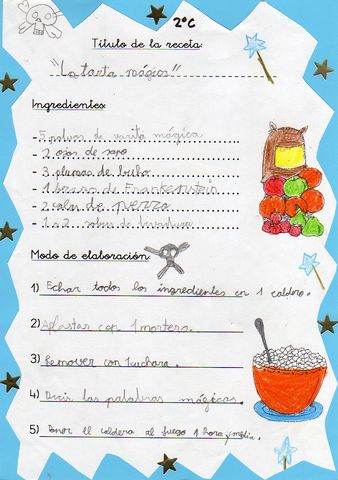 2ºC
Título de la receta:
"La tarta mágica"
Ingredientes:
- 5 polvos de varita mágica
- 2 ojos de sapo
- 3 plumas de buho
- 1 de Frankenstein
- 2 colas de perro
- 1 o 2 de levadura
Modo de elaboración:
1) Echar todos los ingredientes en 1 caldero.
2) Aplastar con 1 mortero.
3) Remover con 1 cuchara.
4) Decir las palabras mágicas.
5) Poner el caldero al fuego 1 hora y media.